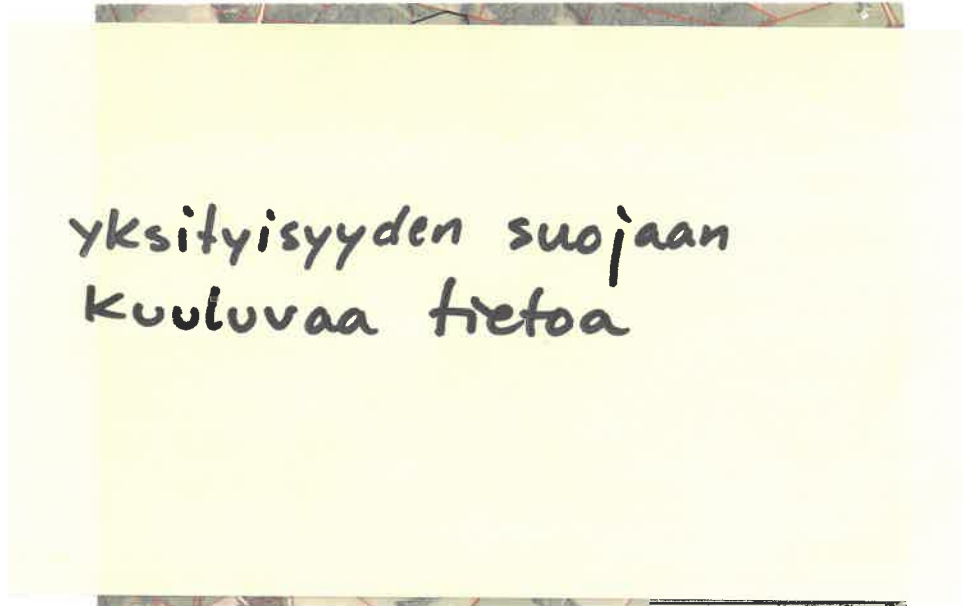 yksityisyyden suojaan
kuuluvaa tietoa